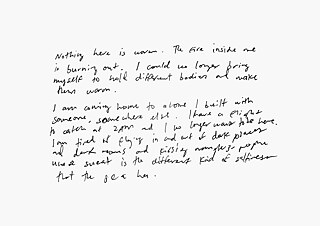 Nothing here is warm. The fire inside me
is burning out. I could no longer bring
myself to hold different bodies and make
them warm.
I am coming home to a home I built with
someone, somewhere else. I have a flight
to catch at 2am and I no longer want to be here.
I am tired of flying in and out of dark places
and dark rooms and kissing nameless people
whose sweat is the different kind of saltiness
that the sea has.